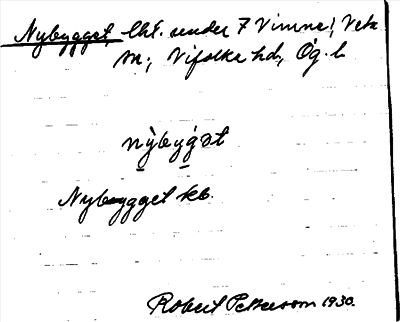 Nybygget, lht. under 7 Vimne, Veta
sn., Vifolka hd, Ög. l.
nỳby̤gət
Nybygget kb.
Robert Pettersson 1930.